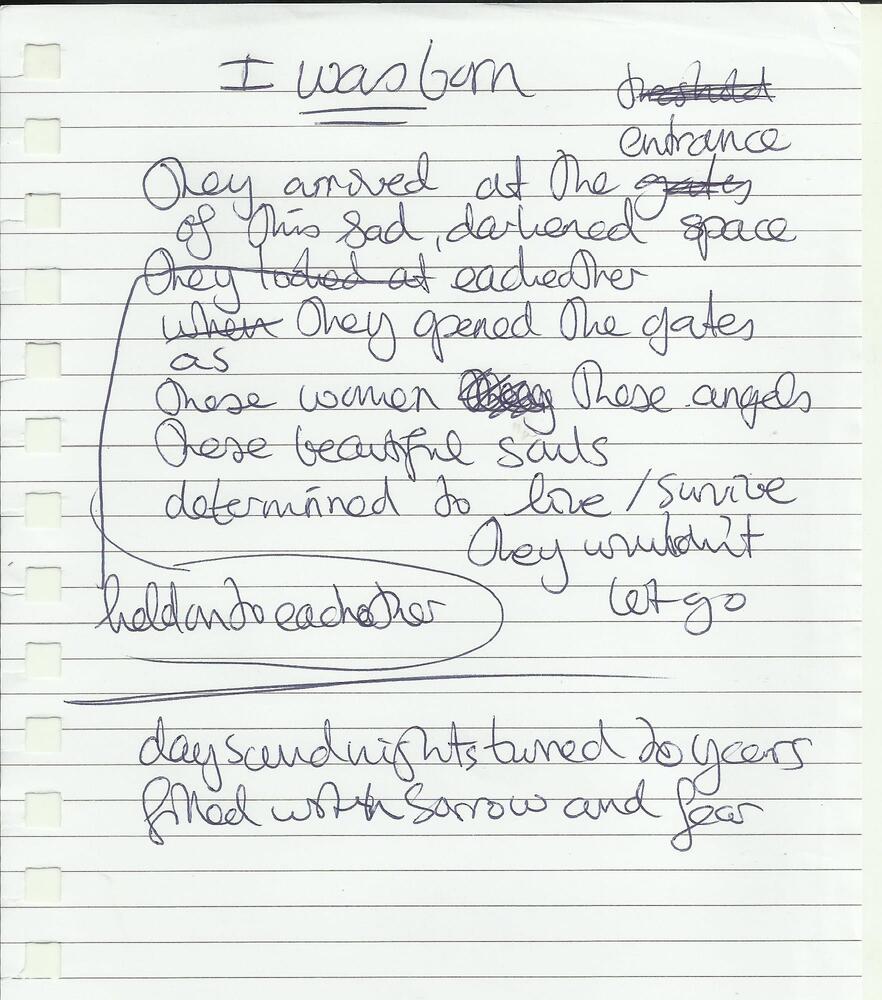 I was born
threshold
entrance
They arrived at the gates
of this sad, darkened space
they looked at eachother
when they opened the gates
as
these women these angels
these beautiful souls
determined to live / survive
they wouldn't
let go
hold onto eachother
days and nights turned to years
filled with sorrow and fear